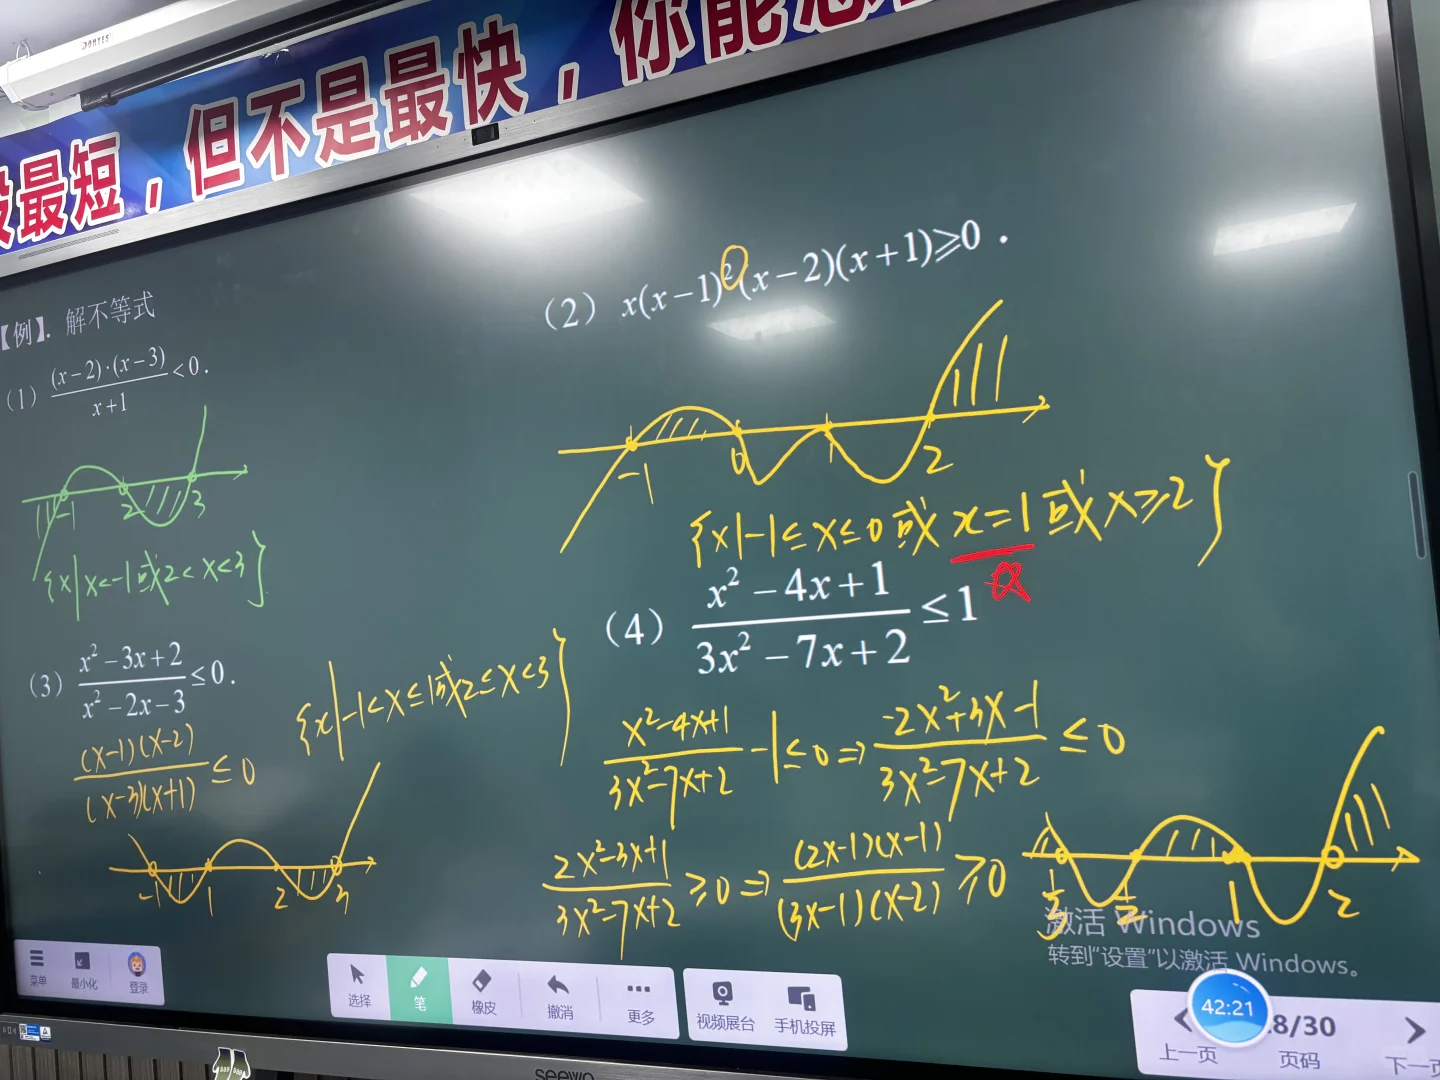 最短，但不是最快，你能
【例】. 解不等式
(1) \frac{(x-2)·(x-3)}{x+1}<0.
-1 2 3
{x|x<-1或2<x<3}
(2) x(x-1)²(x-2)(x+1)≥0.
-1 0 1 2
{x|-1≤x≤0或x=1或x≥2}
(3) \frac{x²-3x+2}{x²-2x-3}≤0.
{x|-1<x≤1或2≤x<3}
\frac{(x-1)(x-2)}{(x-3)(x+1)}≤0
-1 1 2 3
(4) \frac{x²-4x+1}{3x²-7x+2}≤1
\frac{x²-4x+1}{3x²-7x+2}-1≤0⇒\frac{-2x²+3x-1}{3x²-7x+2}≤0
\frac{2x²-3x+1}{3x²-7x+2}≥0⇒\frac{(2x-1)(x-1)}{(3x-1)(x-2)}≥0
\frac{1}{3} \frac{1}{2} 1 2
激活 Windows
转到“设置”以激活 Windows。
菜单 最小化 登录
选择 笔 橡皮 撤消 更多
视频展台 手机投屏
42:21
8/30
上一页 页码 下一页
seewo